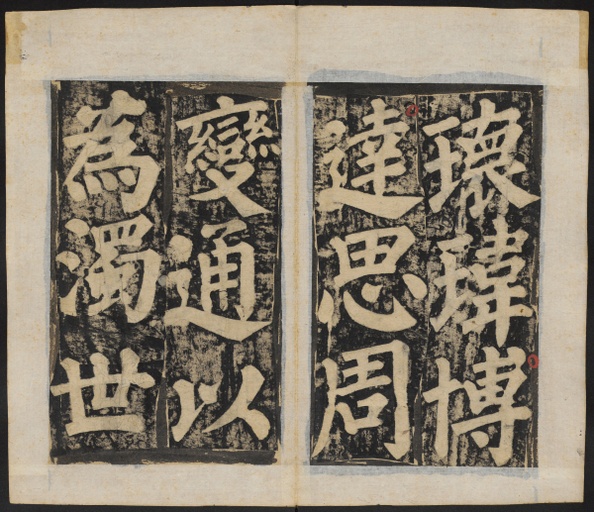 瓌瑋博
達思周
變通以
為濁世